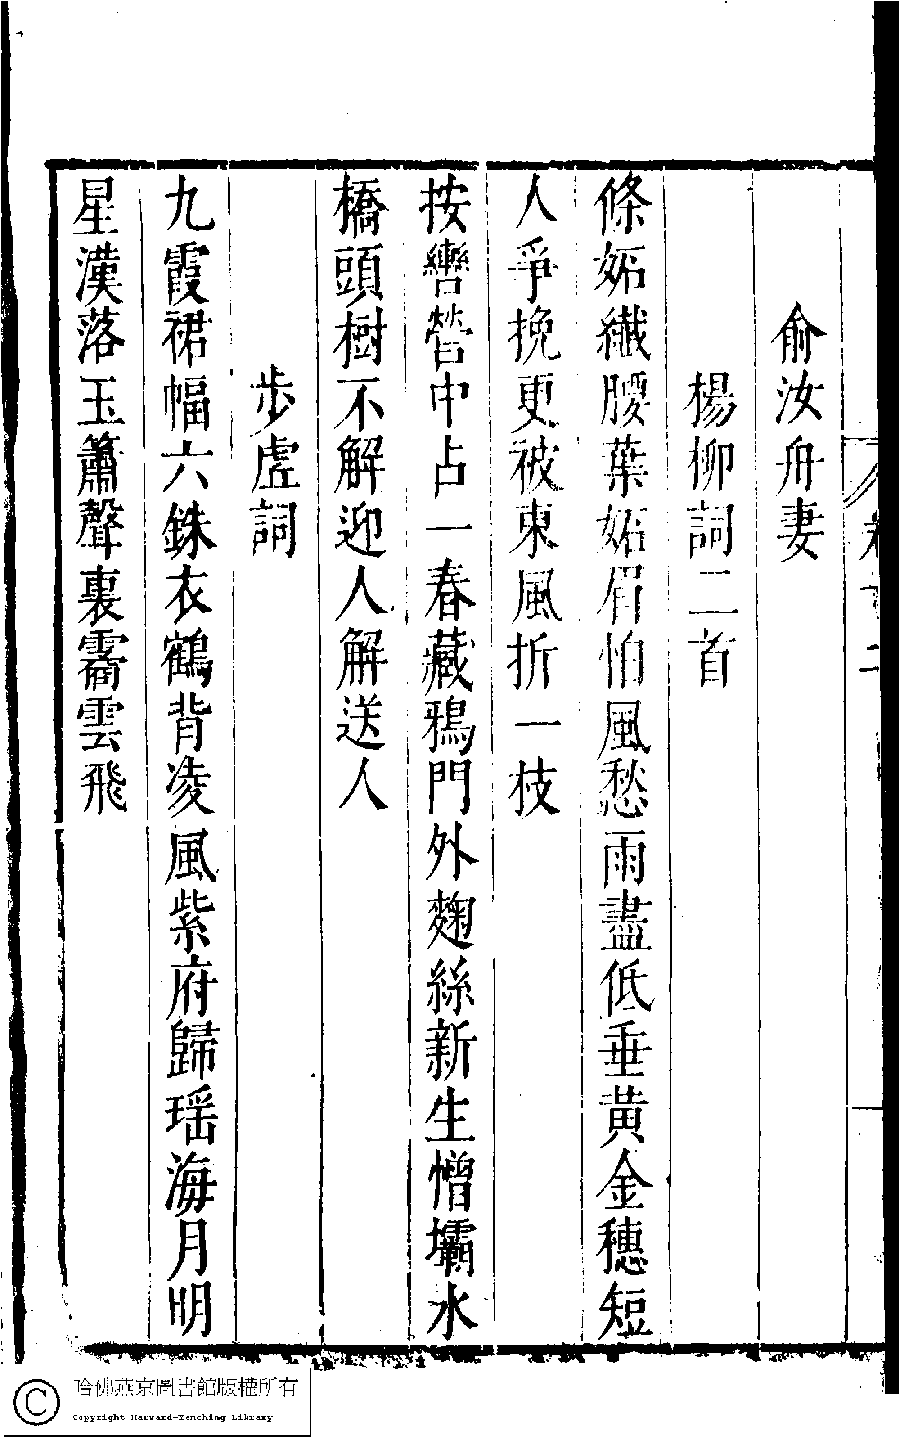 俞汝舟妻
楊柳詞二首
條妬纖腰葉妬眉怕風愁雨盡低垂黄金穗短
人爭挽更被東風折一枝
按轡營中占一春藏鴉門外麴絲新生憎壩水
橋頭樹不解迎人解送人
步虛詞
九霞裙幅六銖衣鶴背凌風紫府歸瑶海月明
星漢落玉簫聲裏霱雲飛
哈佛燕京圖書館版權所有
Copyright Harvard-Yenching Library